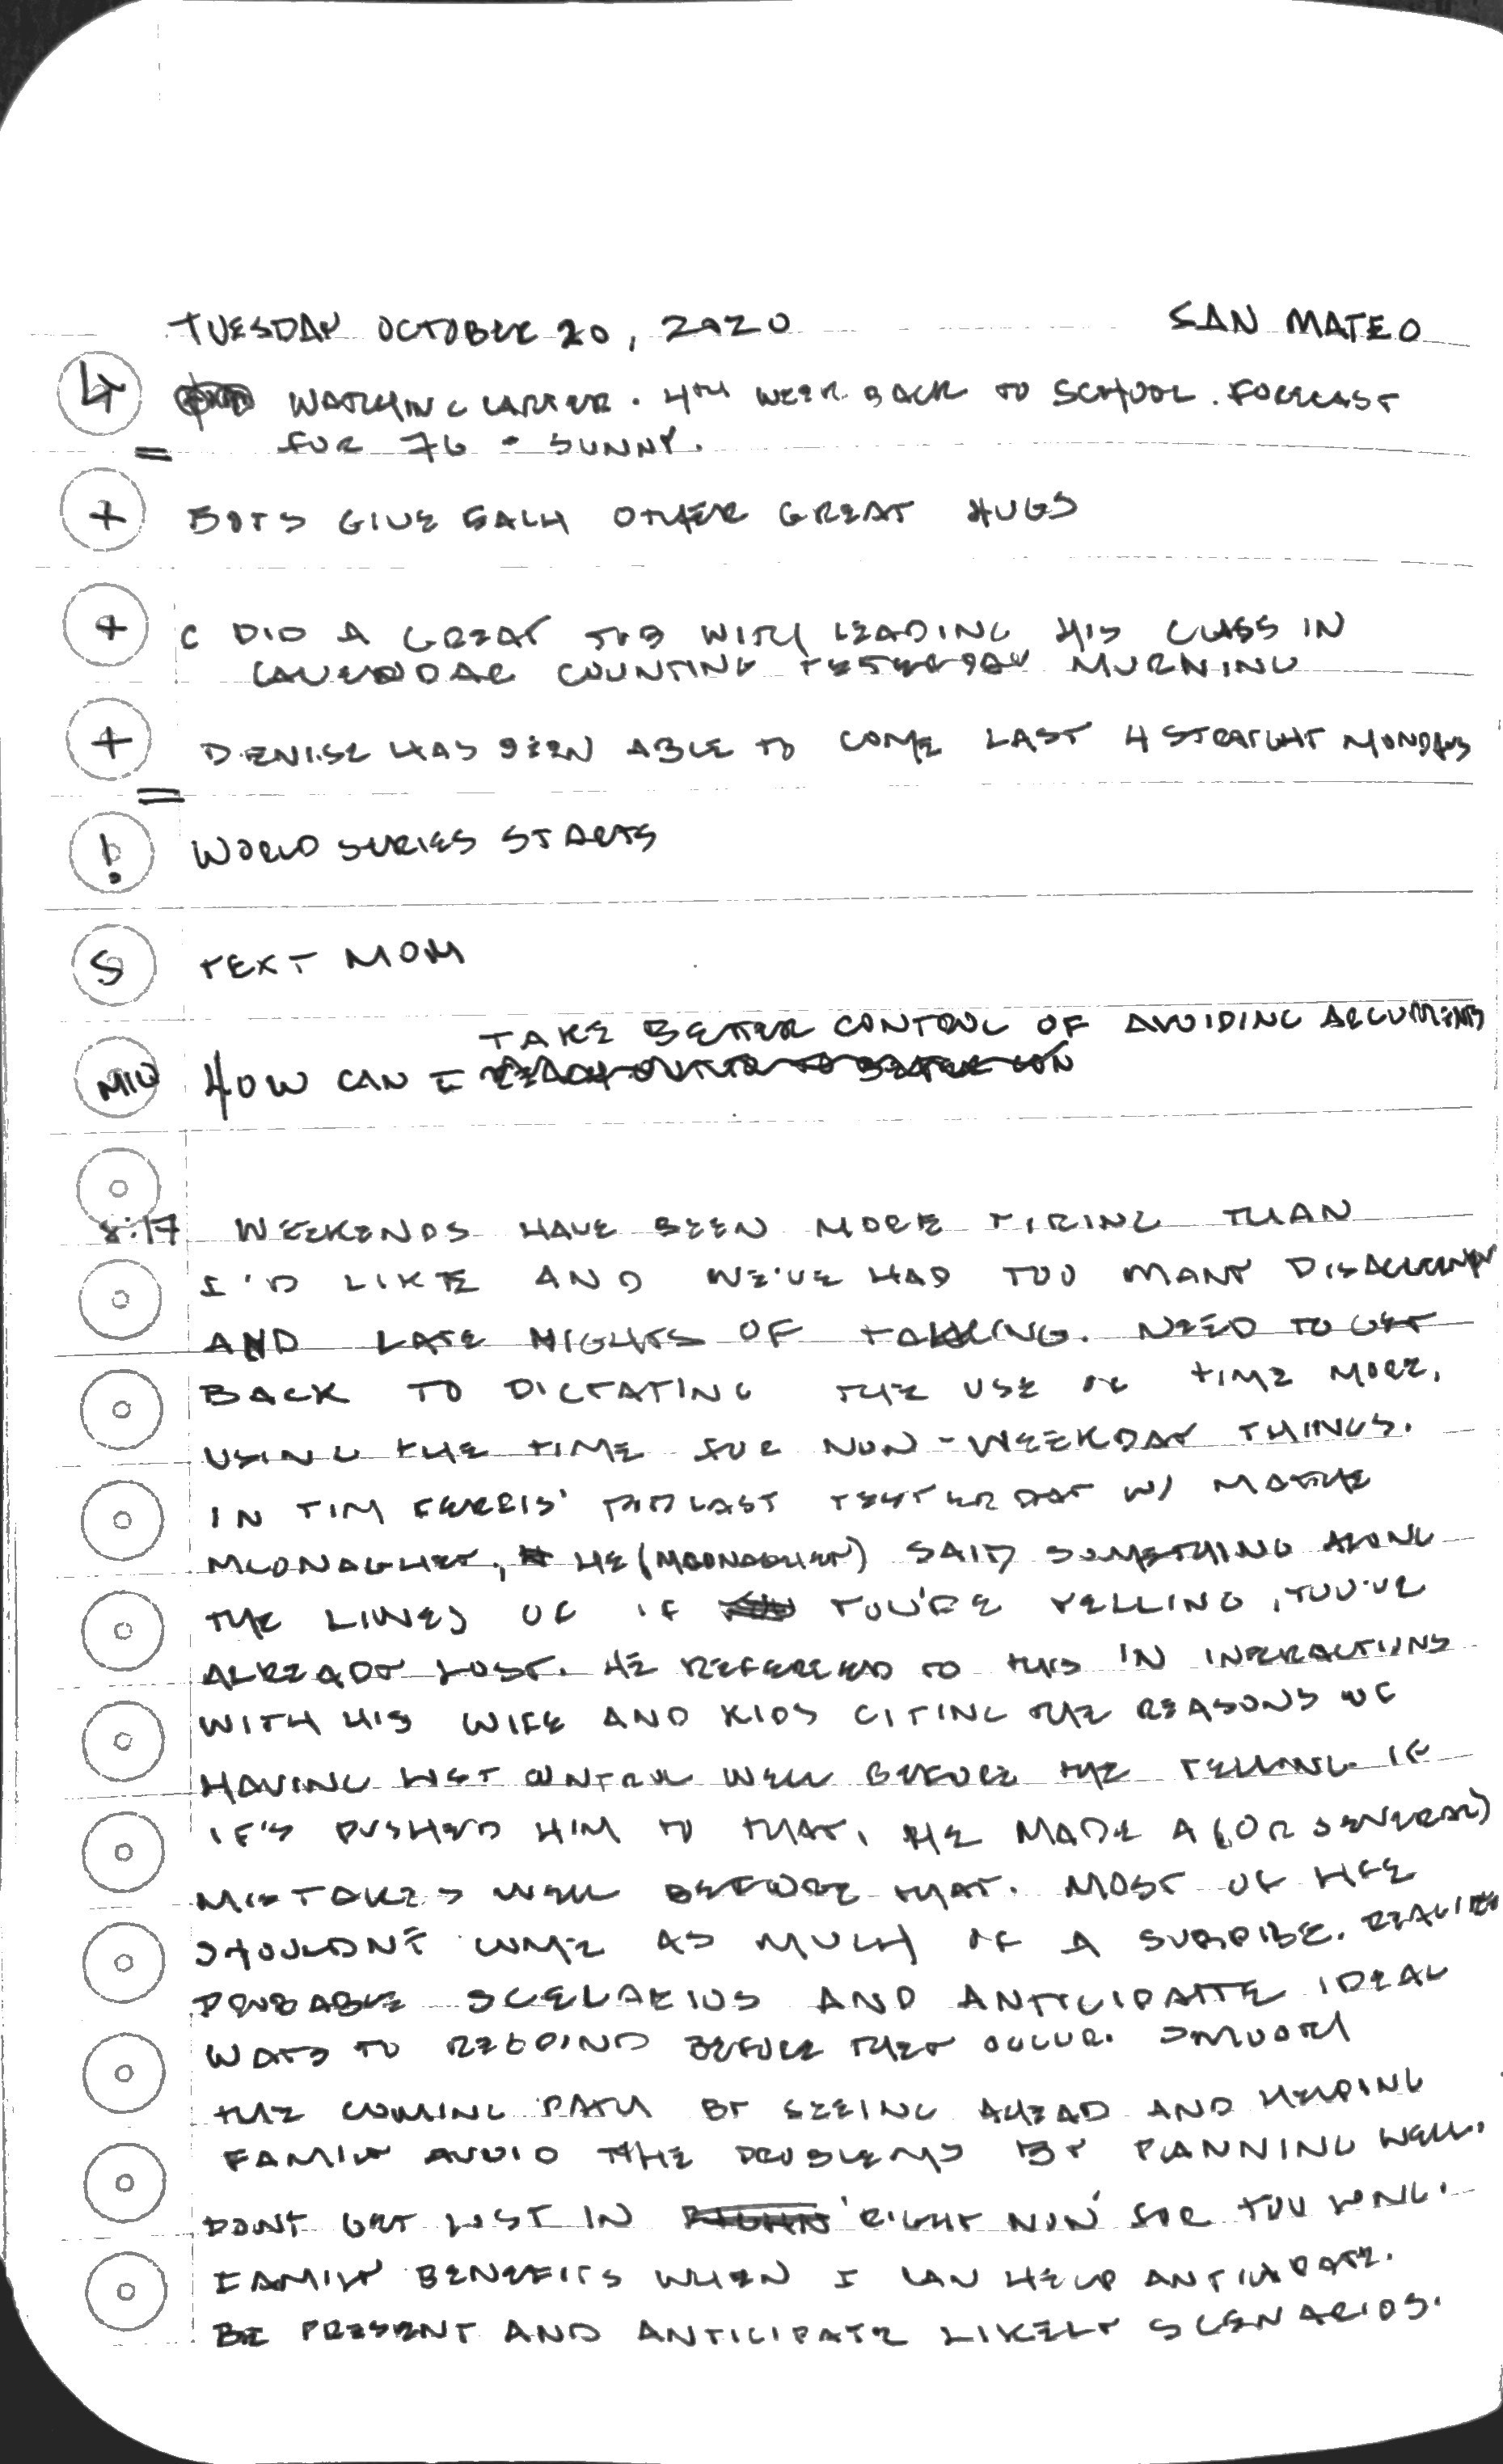 TUESDAY OCTOBER 20, 2020 SAN MATEO
4 WATCHING CARTER. 4TH WEEK BACK TO SCHOOL. FORECAST
FOR 76 - SUNNY.
=
+ BOYS GIVE EACH OTHER GREAT HUGS
+ C DID A GREAT JOB WITH LEADING HIS CLASS IN
CALENDAR COUNTING YESTERDAY MORNING
+ DENISE HAS BEEN ABLE TO COME LAST 4 STRAIGHT MONDAYS
=
! WORLD SERIES STARTS
S TEXT MOM
TAKE BETTER CONTROL OF AVOIDING ARGUMENTS
MIQ HOW CAN I
8:17 WEEKENDS HAVE BEEN MORE TIRING THAN
I'D LIKE AND WE'VE HAD TOO MANY DISAGREEMENTS
AND LATE NIGHTS OF TALKING. NEED TO GET
BACK TO DICTATING THE USE OF TIME MORE,
USING THE TIME FOR NON-WEEKDAY THINGS.
IN TIM FERRIS' PODCAST YESTERDAY W/
MCONAGHEY, HE (MCONAGHEY) SAID SOMETHING ALONG
THE LINES OF IF YOU'RE YELLING, YOU'VE
ALREADY LOST. HE REFERRED TO THIS IN INTERACTIONS
WITH HIS WIFE AND KIDS CITING THE REASONS OF
HAVING LOST CONTROL WELL BEFORE THE YELLING. IF
IT'S PUSHED HIM TO THAT, HE MADE A (OR SEVERAL)
MISTAKES WELL BEFORE THAT. MOST OF LIFE
SHOULDN'T COME AS MUCH OF A SURPRISE. REALIZE
PROBABLE SCENARIOS AND ANTICIPATE IDEAL
WAYS TO RESPOND BEFORE THEY OCCUR. SMOOTH
THE COMING PATH BY SEEING AHEAD AND HELPING
FAMILY AVOID THE PROBLEMS BY PLANNING WELL.
DON'T GET LOST IN 'RIGHT NOW' FOR TOO LONG.
FAMILY BENEFITS WHEN I CAN HELP ANTICIPATE.
BE PRESENT AND ANTICIPATE LIKELY SCENARIOS.